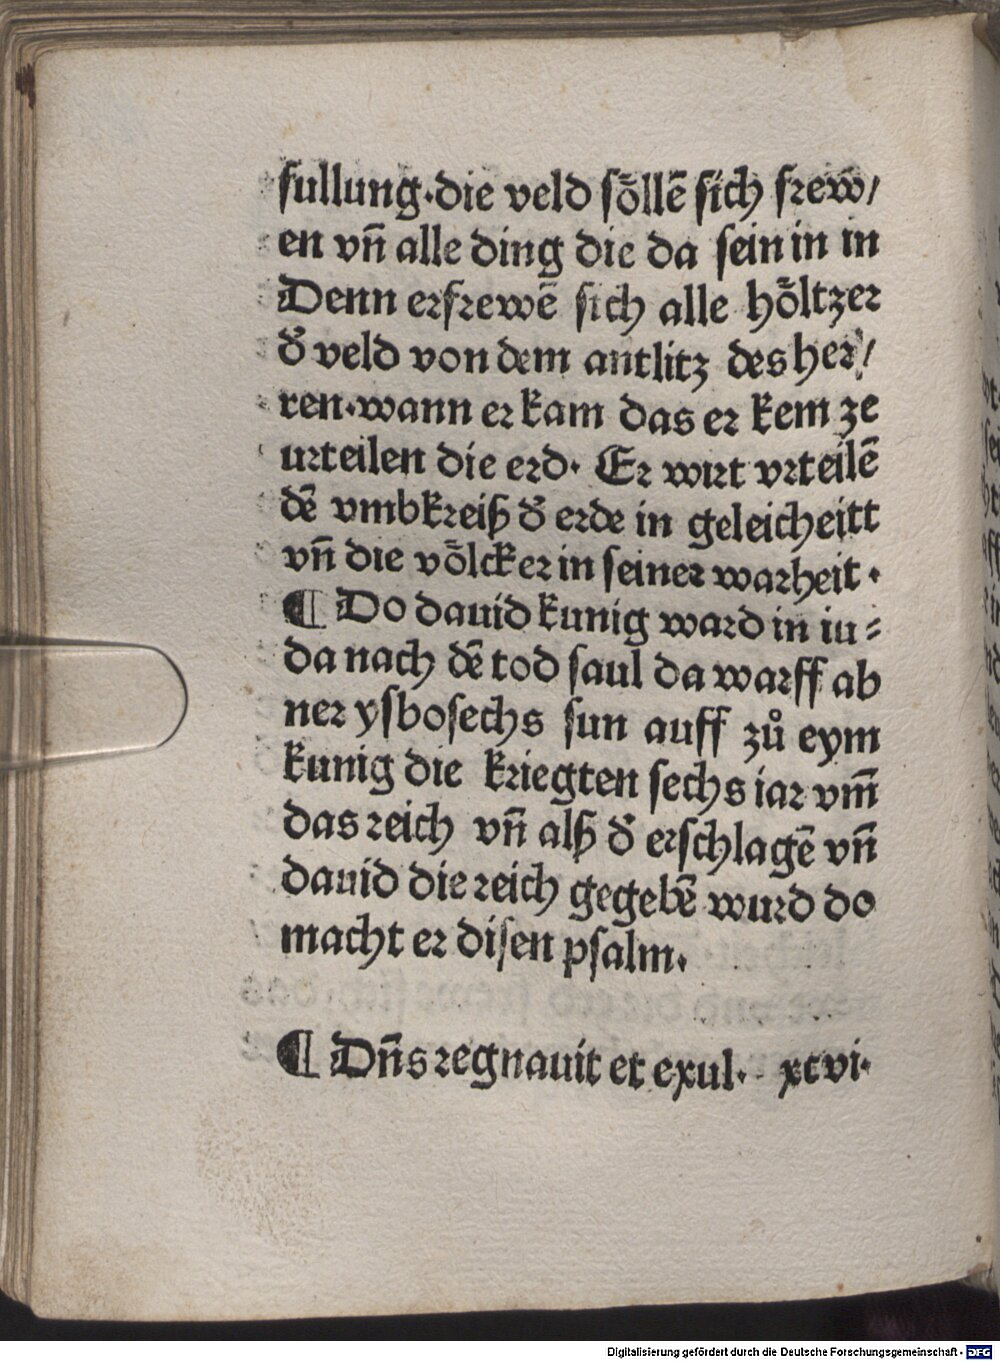 fullung·die veld soͤllē sich frew̄/
en vn̄ alle ding die da sein in in
Denn erfrewē sich alle hoͤltzer
d̕ veld von dem antlitz des her/
ren·wann er kam das er kem ze
urteilen die erd· Er wirt vrteilē
dē vmbkreiß d̕ erde in geleicheitt
vn̄ die voͤlcker in seiner warheit·
¶ Do dauid kunig ward in iu⸗
da nach dē tod saul da warff ab
ner ysbosechs sun auff zů eym
kunig die kriegten sechs iar vm̄
das reich vn̄ alß d̕ erschlagē vn̄
dauid die reich gegebē wurd do
macht er disen psalm.
¶ Dn̄s regnauit et exul· xcvi·
Digitalisierung gefördert durch die Deutsche Forschungsgemeinschaft - DFG